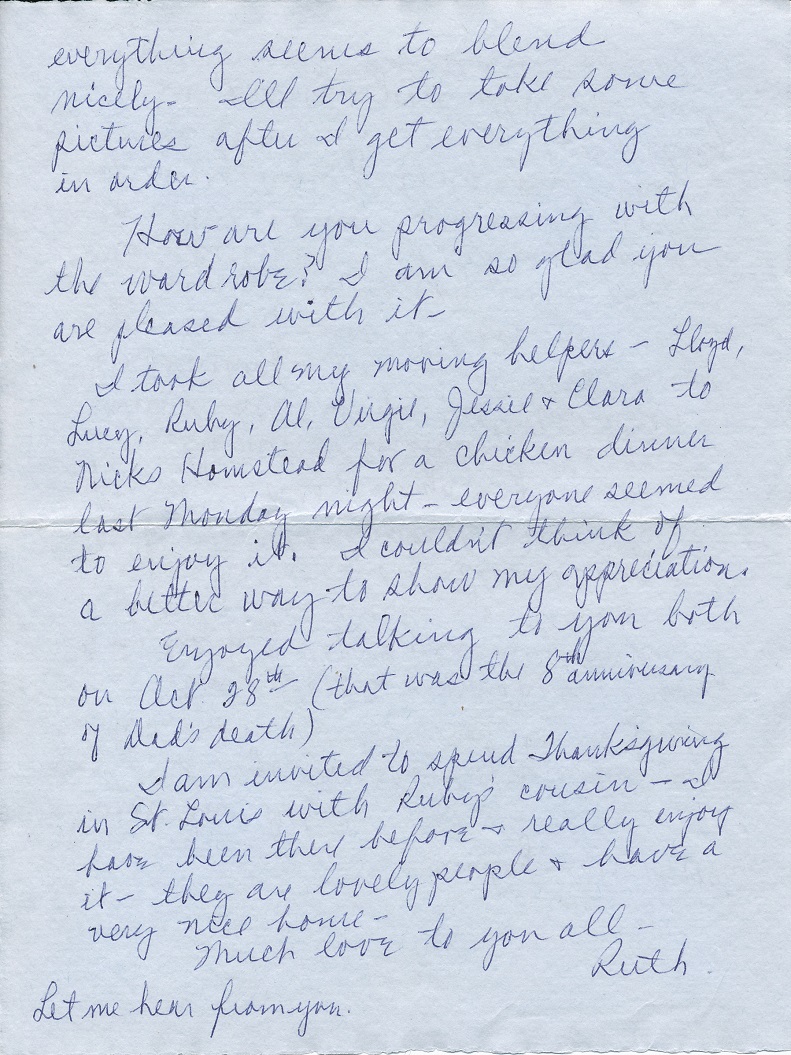 everything seems to blend
nicely - I'll try to take some
pictures after I get everything
in order.
How are you progressing with
the wardrobe? I am so glad you
are pleased with it -
I took all my moving helpers - Lloyd,
Lucy, Ruby, Al, Virgil, Jessie & Clara to
Nicks Homstead for a chicken dinner
last Monday night - everyone seemed
to enjoy it. I couldn't think of
a better way to show my appreciation.
Enjoyed talking to you both
on Oct 28th (that was the 8th anniversary
of Dad's death)
I am invited to spend Thanksgiving
in St. Louis with Ruby's cousin - I
have been there before & really enjoy
it - they are lovely people & have a
very nice home -
Much love to you all -
Ruth.
Let me hear from you.